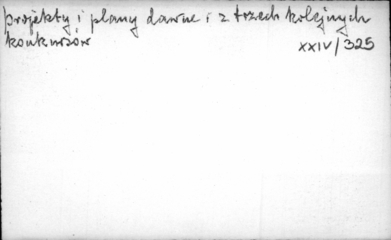 projekty i plany dawne i z trzech kolejnych
konkursów
XXIV/325